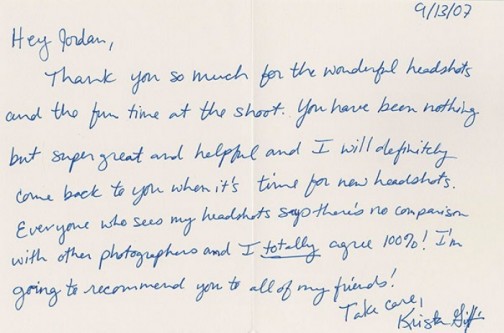 9/13/07
Hey Jordan,
Thank you so much for the wonderful headshots
and the fun time at the shoot. You have been nothing
but super great and helpful and I will definitely
come back to you when it's time for new headshots.
Everyone who sees my headshots says there's no comparison
with other photographers and I totally agree 100%! I'm
going to recommend you to all of my friends!
Take care,